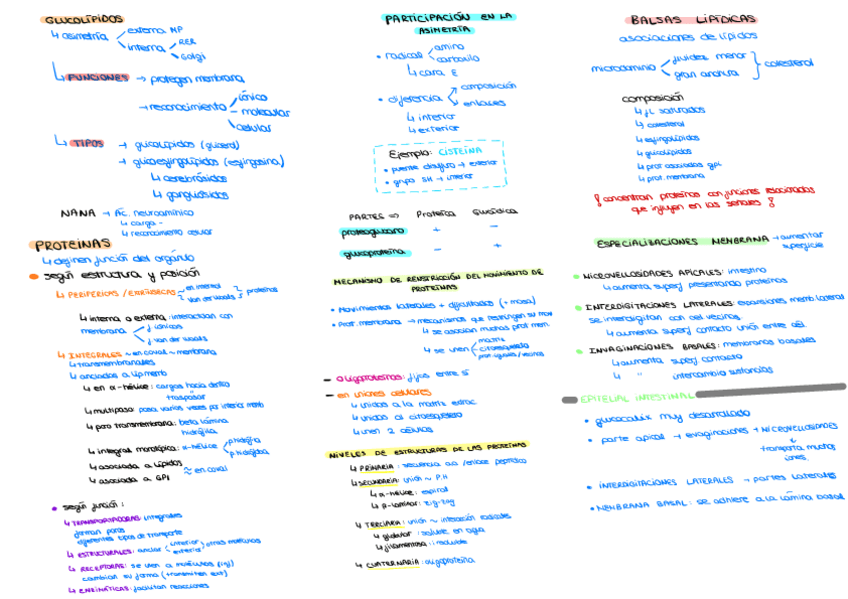 GLUCOLÍPIDOS
↳ asimetría
externa MP
interna
RER
Golgi
↳ FUNCIONES → protegen membrana
→ reconocimiento
iónico
molecular
celular
↳ TIPOS → glucolípidos (glicerol)
→ glucoesfingolípidos (esfingosina)
↳ cerebrósidos
↳ gangliósidos
NANA → Ác. neuroamínico
↳ carga -
↳ reconocimiento celular
PROTEÍNAS
↳ definen función del orgánulo
• según estructura y posición
↳ PERIFÉRICAS / EXTRÍNSECAS
proteínas
↳ interna o externa: interaccionan con
membrana
f. iónicas
f. van der waals
↳ INTEGRALES ~ en coval ~ membrana
↳ transmembranales
↳ anclados a lip memb
↳ en α-hélice: cargas hacia dentro
↳ multipaso: pasa varias veces por interior memb
↳ poro transmembrana: beta lámina
hidrófila
↳ integral monotópica: α-hélice
p.hidrófila
p.hidrófoba
↳ asociada a lípidos
↳ asociada a GPI
≈ en coval
• según función:
↳ TRANSPORTADORAS: integrales
forman poros
diferentes tipos de transporte
↳ ESTRUCTURALES: anclar
interior
exterior
otras moléculas
↳ RECEPTORAS: se unen a moléculas (lig)
cambian su forma (transmiten ext)
↳ ENZIMÁTICAS: facilitan reacciones
PARTICIPACIÓN EN LA
ASIMETRÍA
• radical
amino
carboxilo
↳ cara E
• diferencia
composición
enlaces
↳ interior
↳ exterior
Ejemplo: CISTEÍNA
• puente disulfuro → exterior
• grupo SH → interior
PARTES => Proteica Glucídica
proteoglucano + -
glucoproteína - +
MECANISMO DE RESTRICCIÓN DEL MOVIMIENTO DE
PROTEÍNAS
• Movimientos laterales + dificultades (+ masa)
• Prot. membrana → mecanismos que restringen su mov
↳ se asocian muchas prot mem.
↳ se unen
matriz
citoesqueleto
- Oligoproteínas: fijas entre sí
- en uniones celulares
↳ unidas a la matriz extrac
↳ unidas al citoesqueleto
↳ unen 2 células
NIVELES DE ESTRUCTURAS DE LAS PROTEÍNAS
↳ PRIMARIA: secuencia a.a /enlace peptídico
↳ SECUNDARIA: unión ~ P.H
↳ α-hélice: espiral
↳ β-laminar: zig-zag
↳ TERCIARIA: unión ~ interacción radicales
↳ globular: soluble en agua
↳ filamentosa: insoluble
↳ CUATERNARIA: oligoproteína
BALSAS LIPÍDICAS
asociaciones de lípidos
microdominio
fluidez menor
gran anchura
colesterol
composición
↳ f.L saturados
↳ colesterol
↳ esfingolípidos
↳ glucolípidos
↳ prot asociadas gpi
↳ prot. membrana
¡ concentran proteínas con funciones relacionadas
que influyen en las señales !
ESPECIALIZACIONES MEMBRANA → aumentar
superficie
• MICROVELLOSIDADES APICALES: intestino
↳ aumenta superf presentando proteínas
• INTERDIGITACIONES LATERALES: expansiones memb laterales
se interdigitan con cel vecinas
↳ aumenta superf contacto unión entre cél.
• INVAGINACIONES BASALES: membranas basales
↳ aumenta superf contacto
↳ " intercambio sustancias
EPITELIAL INTESTINAL
• glucocálix muy desarrollado
• parte apical → evaginaciones → MICROVELLOSIDADES
↓
transporta muchos
iones.
• INTERDIGITACIONES LATERALES → partes laterales
• MEMBRANA BASAL: se adhiere a la lámina basal